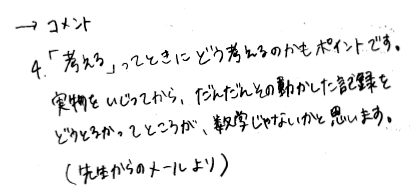 → コメント
4.「考える」ってときにどう考えるのかもポイントです。
実物をいじってから、だんだんその動かした記録を
どうとるかってところが、数学じゃないかと思います。
(先生からのメールより)